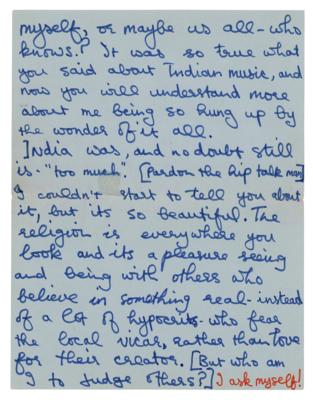 myself, or maybe us all - who
knows? It was so true what
you said about Indian music, and
now you will understand more
about me being so hung up by
the wonder of it all.
India was, and no doubt still
is - "too much". [Pardon the hip talk man]
I couldn't start to tell you about
it, but its so beautiful. The
religion is everywhere you
look and its a pleasure seeing
and being with others who
believe in something real - instead
of a lot of hypocrits - who fear
the local vicar, rather than love
for their creator. [But who am
I to judge others?] I ask myself!